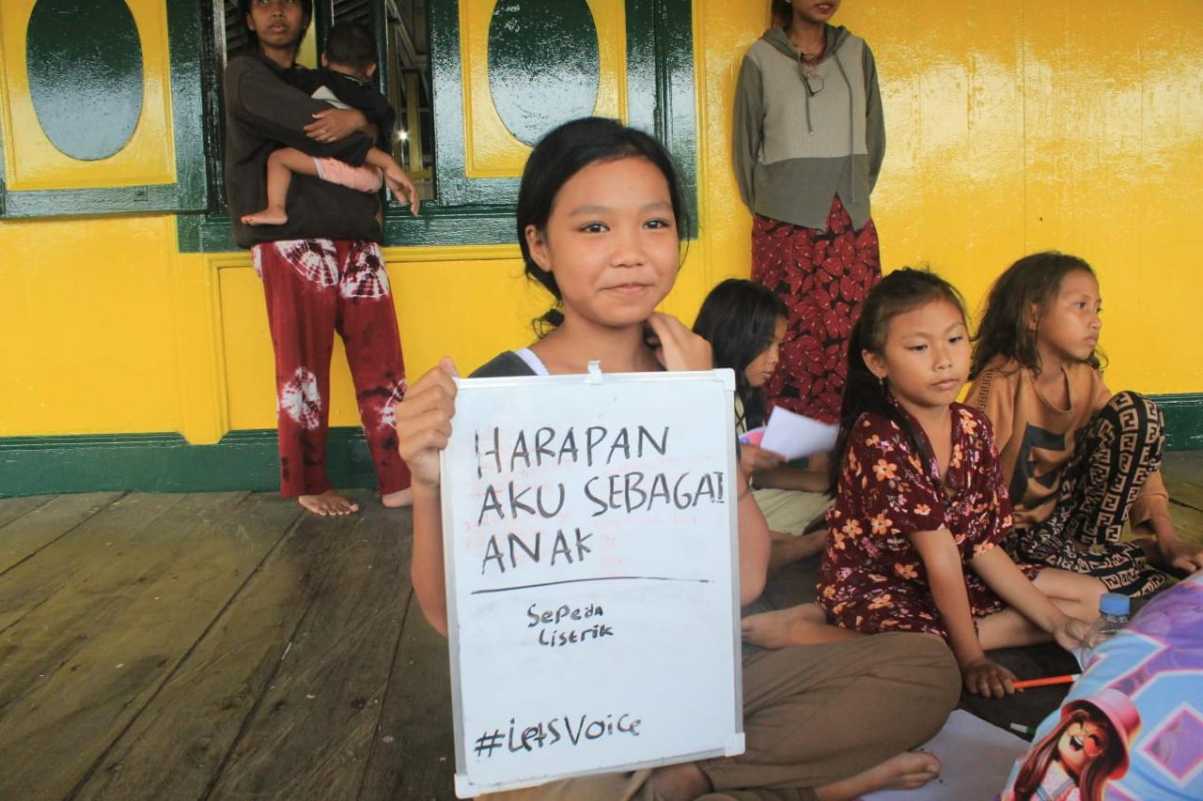 HARAPAN
AKU SEBAGAI
ANAK
Sepeda
Listrik
#LetsVoice